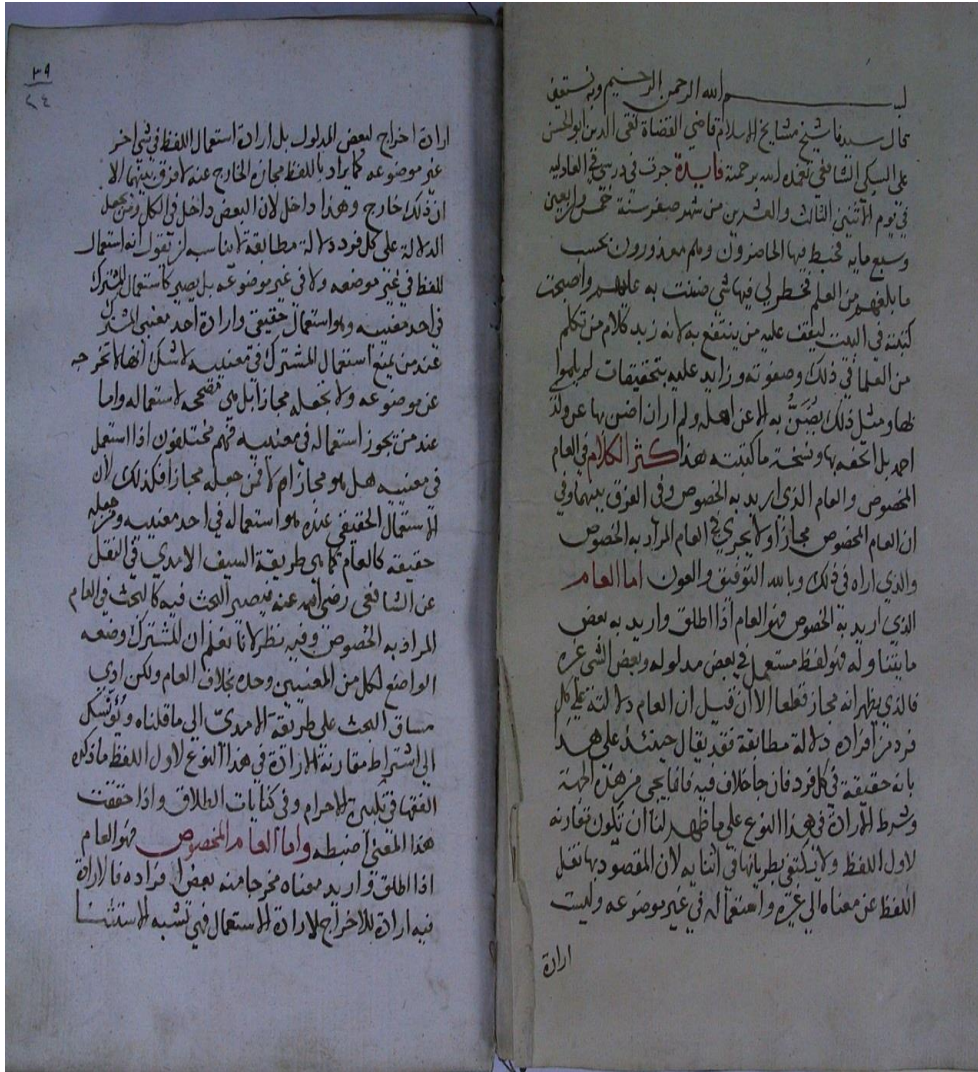 بسم الله الرحمن الرحيم وبه نستعين
قال سيدنا شيخ مشايخ الاسلام قاضي القضاة تقي الدين ابو الحسن
علي السبكي الشافعي تغمده الله برحمته فايدة جرت في درسي في العادليه
في يوم الاثنين الثالث والعشرين من شهر صفر سنة خمس واربعين
وسبع مايه تخبط فيها الحاضرون وهم معذورون بحسب
ما بلغهم من العلم فخطر لي فيها شي ضننت به عليهم واصبحت
كتبته في البيت ليقف عليه من ينتفع به لانه زبد كلام من تكلم
من العلما في ذلك وصفوته وزايد عليه بتحقيقات لم يلموا
بها ومثل ذلك يضن به الا عن اهله ولم ار ان اضن بها عن ولدي
احمد بل اتحفه بها ونسخة ما كتبته هذا كثر الكلام في العام
المخصوص والعام الذي اريد به الخصوص وفي الفرق بينهما وفي
ان العام المخصوص مجاز اولا يجري في العام المراد به الخصوص
والذي اراه في ذلك وبالله التوفيق والعون اما العام
الذي اريد به الخصوص فهو العام اذا اطلق واريد به بعض
ما يتناوله فهو لفظ مستعمل في بعض مدلوله وبعض الشي غيره
فالذي يظهر انه مجاز قطعا الا ان قيل ان العام دلالته على كل
فرد من افراده دلالة مطابقة فقد يقال حينئذ على هذا
بانه حقيقة في كل فرد فان جا خلاف فيه فانما يجي من هذه الجهة
وشرط الارادة في هذا النوع على ما ظهر لنا ان تكون مقارنة
لاول اللفظ ولا نكتفي بطريانها في اثنايه لان المقصود بها نقل
اللفظ عن معناه الى غيره واستعماله في غير موضوعه وليست
ارادة
٣٩
٢٤
ارادة اخراج لبعض المدلول بل ارادة استعمال اللفظ في شي اخر
غير موضوعه كما يراد باللفظ مجازه الخارج عنه لا فرق بينهما الا
ان ذلك خارج وهذا داخل لان البعض داخل في الكل ومن يجعل
الدلالة على كل فرد دلالة مطابقة لا يناسب ان يقول انه استعمال
للفظ في غير موضعه ولا في غير موضوعه بل يصير كاستعمال المشترك
في احد معنييه وهو استعمال حقيقي وارادة احد معنيي المشترك
عند من يمنع استعمال المشترك في معنييه لا شك انها لا تخرجه
عن موضوعه ولا تجعله مجازا بل هي مصححه لاستعماله واما
عند من يجوز استعماله في معنييه فهم مختلفون اذا استعمل
في معنييه هل هو مجاز ام لا فمن جعله مجازا فكذلك لان
الاستعمال الحقيقي عنده هو استعماله في احد معنييه ومن جعله
حقيقه كالعام كما هي طريقة السيف الامدي في النقل
عن الشافعي رضي الله عنه فيصير البحث فيه كالبحث في العام
المراد به الخصوص وفيه نظر لانا نعلم ان المشترك وضعه
الواضع لكل من المعنيين وحده بخلاف العام ولكن ادي
مساق البحث على طريقة الامدي الى ما قلناه ويونسك
الى اشتراط مقارنة الارادة في هذا النوع لاول اللفظ ما ذكره
الفقها في تكبيرة الاحرام وفي كنايات الطلاق واذا حققت
هذا المعنى اضبطه واما العام المخصوص فهو العام
اذا اطلق واريد معناه مخرجا منه بعض افراده فالارادة
فيه ارادة للاخراج لا ارادة الاستعمال فهي تشبه الاستثنا